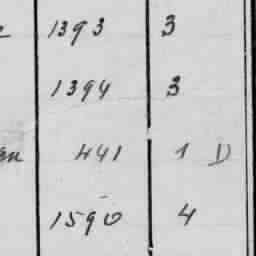 1393 3
1394 3
441 1 D
1590 4